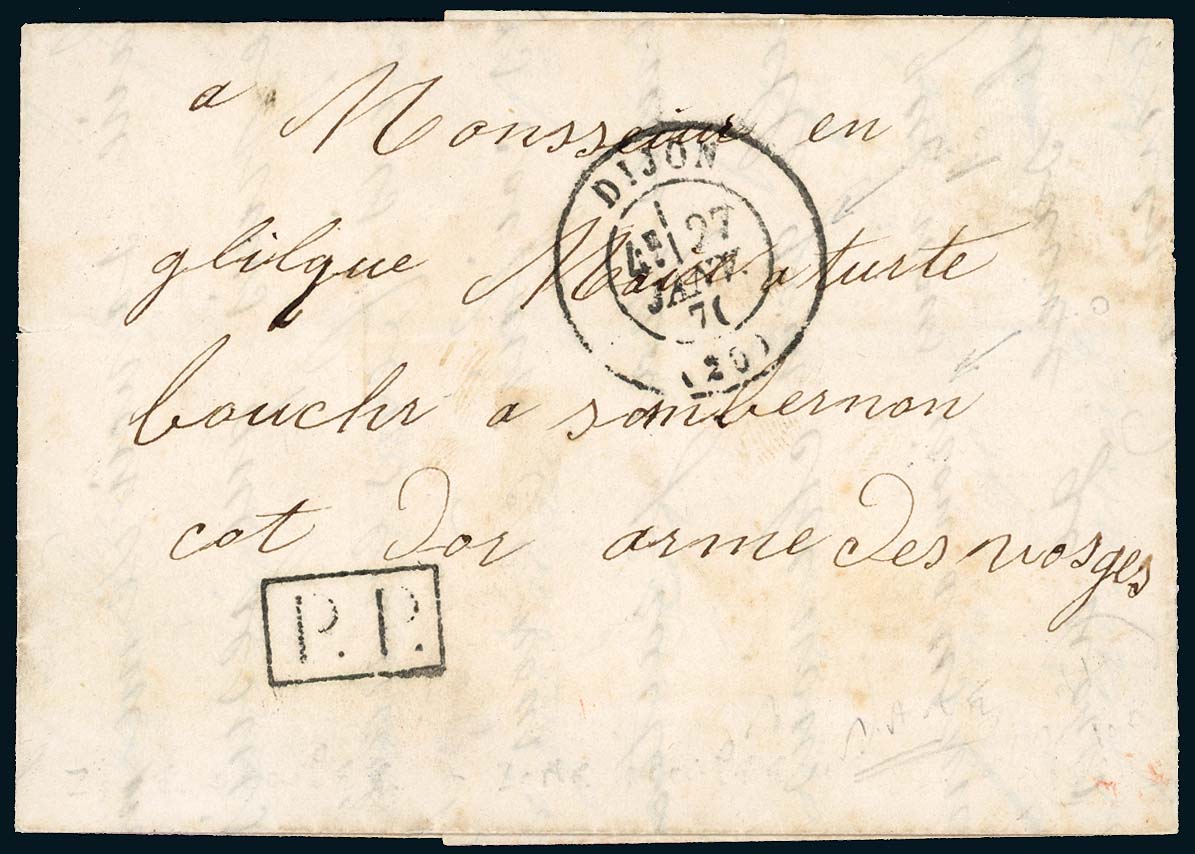 a Monsseiur en
DIJON
4E 27
JANV.
71
(20)
glilque
bouchr a sombernon
cot dor arme des vosges
P. P.